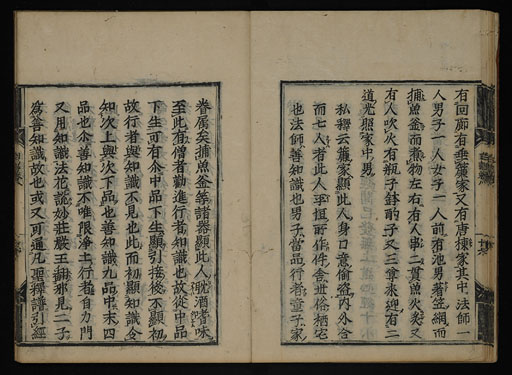 有回廊有垂簾家又有唐棟家其中法師一
人男子一人女子一人前有池男著笠網而
捕魚釜而煮物左右有人串二貫魚火炙又
有人吹火有瓶子銚酌子又三尊来迎有二
道光照家中男
私釋云簾家顯此人身口意偷盗内外合
而七人者此人平恒所作件舎世俗栖宅
也法師善知識也男子當品行者童子家
眷属矣捕魚釜等諸器顯此人耽酒者味
至此有僧者勧進行者知識也故従中品
下生可有介中品下生顯引接後不顯初
故行者與知識不見也此而初顯知識令
知次上與次下品也善知識九品中末四
品也介善知識不唯限淨土行者自力門
又用知識法花説妙莊嚴王細那見二子
為善知識故也或又可通凡聖釋譜引經